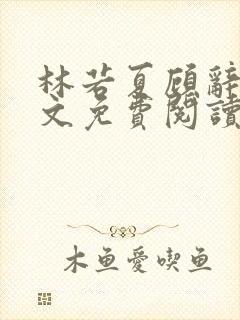 林若夏顾辭
文免費閱讀
木鱼愛喫鱼